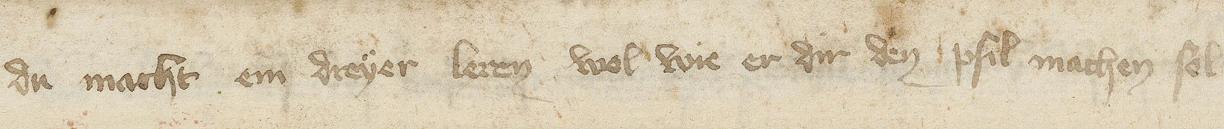 du macht ein dreÿer leren wol wie er dir den pfil machen sol